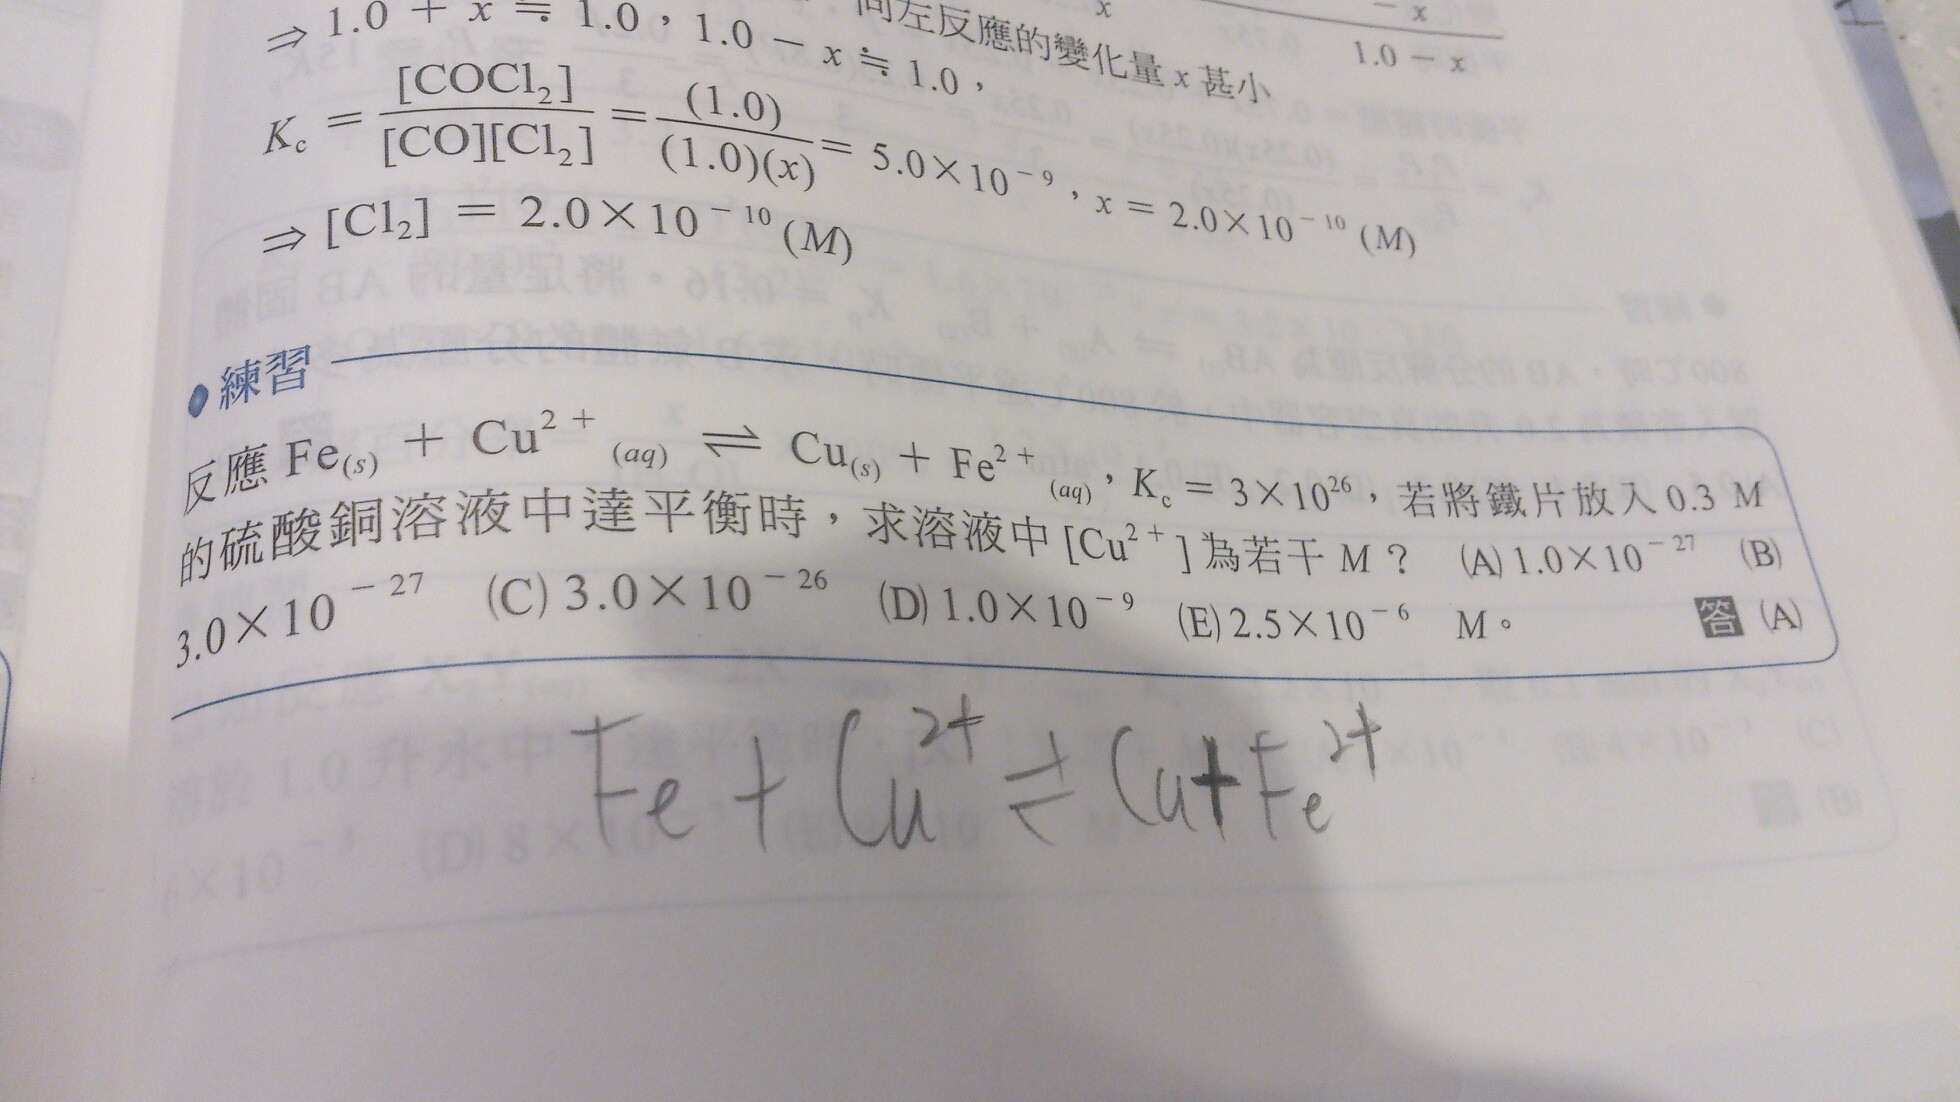 x
− x
⇒ 1.0 + x ≒ 1.0，1.0 − x ≒ 1.0，
向左反應的變化量 x 甚小
1.0 − x
K_c = [COCl₂] / [CO][Cl₂] = (1.0) / (1.0)(x) = 5.0×10⁻⁹，x = 2.0×10⁻¹⁰ (M)
⇒ [Cl₂] = 2.0×10⁻¹⁰ (M)
練習
反應 Fe(s) + Cu²⁺(aq) ⇌ Cu(s) + Fe²⁺(aq)，K_c = 3×10²⁶，若將鐵片放入 0.3 M
的硫酸銅溶液中達平衡時，求溶液中 [Cu²⁺] 為若干 M？ (A) 1.0×10⁻²⁷ (B)
3.0×10⁻²⁷ (C) 3.0×10⁻²⁶ (D) 1.0×10⁻⁹ (E) 2.5×10⁻⁶ M。 答 (A)
Fe + Cu²⁺ ⇌ Cu + Fe²⁺